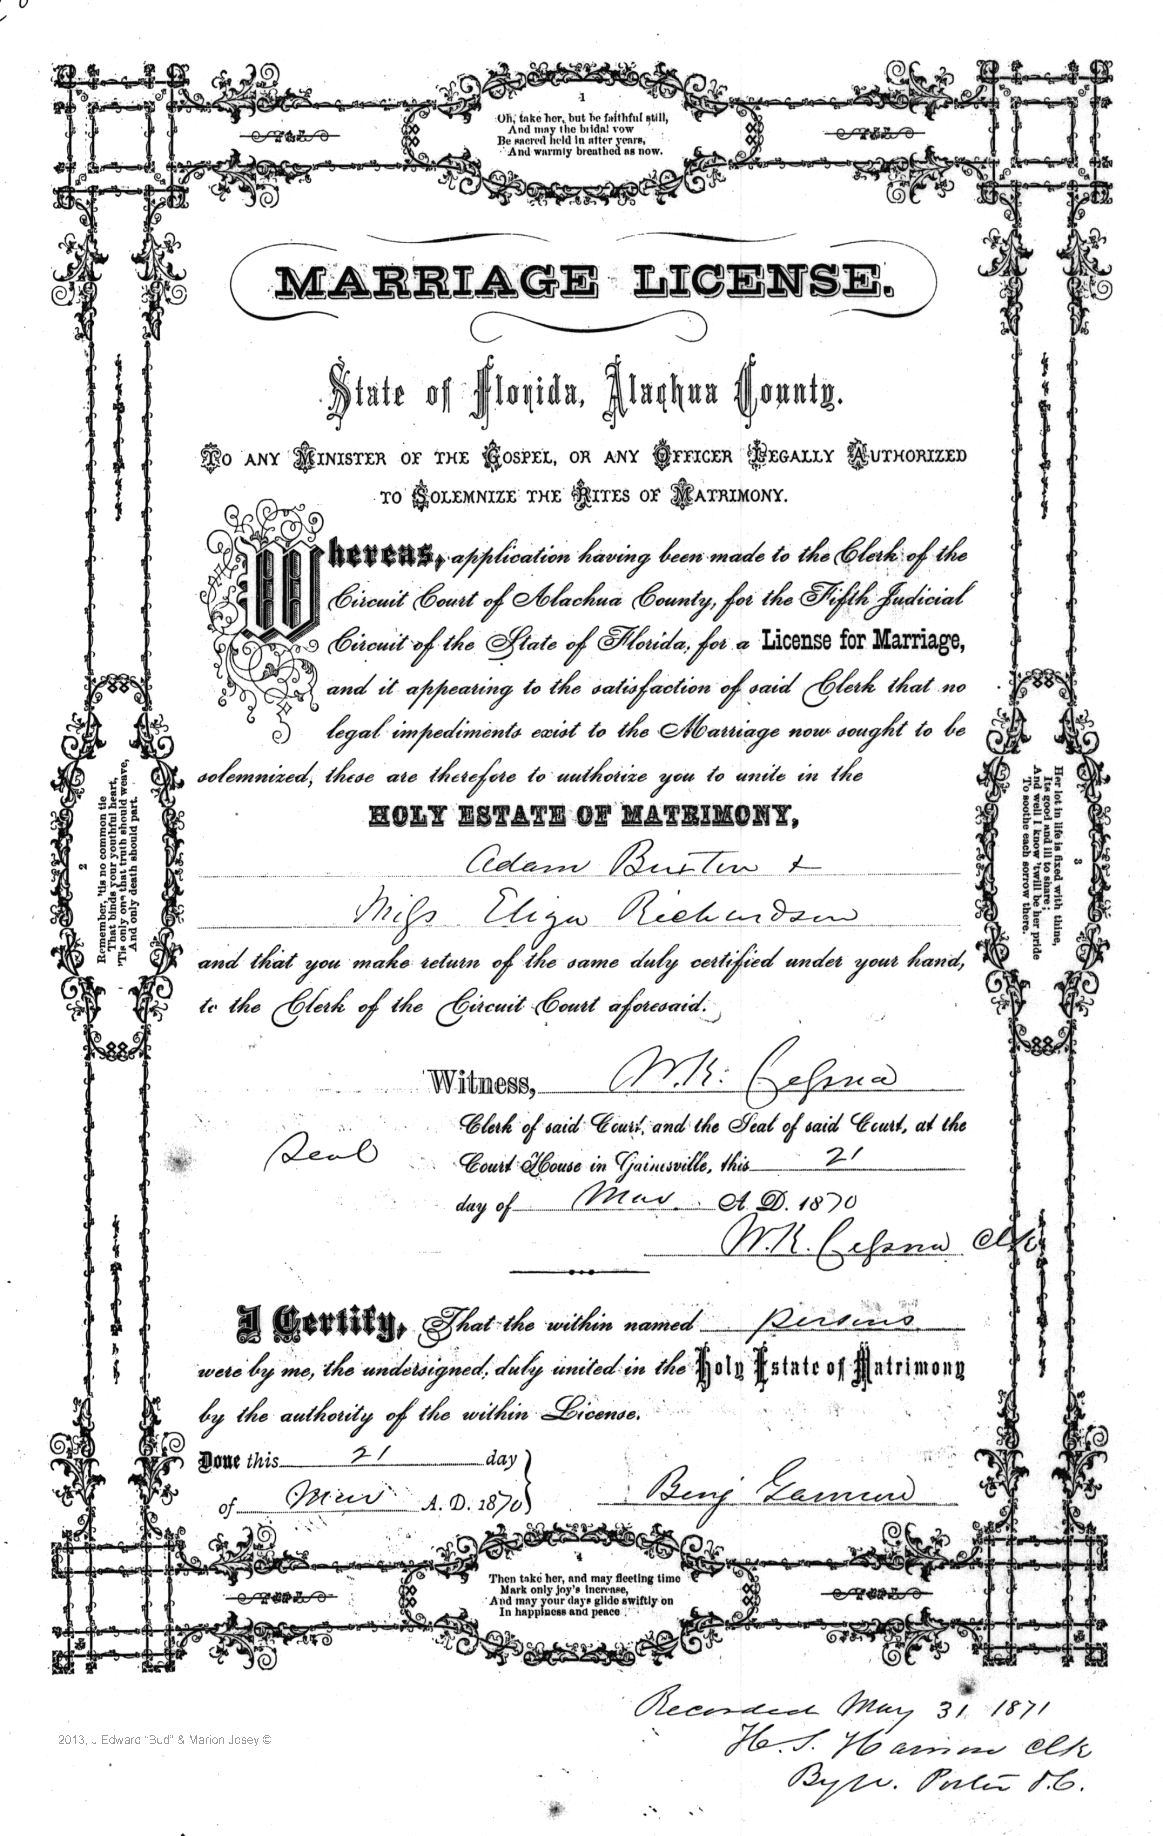 1
Oh, take her, but be faithful still,
And may the bridal vow
Be sacred held in after years,
And warmly breathed as now.
MARRIAGE LICENSE.
State of Florida, Alachua County.
TO ANY MINISTER OF THE GOSPEL, OR ANY OFFICER LEGALLY AUTHORIZED
TO SOLEMNIZE THE RITES OF MATRIMONY.
Whereas, application having been made to the Clerk of the
Circuit Court of Alachua County, for the Fifth Judicial
Circuit of the State of Florida, for a License for Marriage,
and it appearing to the satisfaction of said Clerk that no
legal impediments exist to the Marriage now sought to be
solemnized, these are therefore to authorize you to unite in the
HOLY ESTATE OF MATRIMONY,
Adam Buxton &
Miss Eliza Richardson
and that you make return of the same duly certified under your hand,
to the Clerk of the Circuit Court aforesaid.
2
Remember, 'tis no common tie
That binds your youthful heart,
'Tis only one that truth should weave,
And only death should part.
3
Her lot in life is fixed with thine,
Its good and ill to share;
And well I know 'twill be her pride
To soothe each sorrow there.
Witness, W. K. Cessna
Clerk of said Court, and the Seal of said Court, at the
Seal
Court House in Gainesville, this 21
day of Mar A. D. 1870
W. K. Cessna Clk
I Certify, That the within named persons
were by me, the undersigned, duly united in the Holy Estate of Matrimony
by the authority of the within License.
Done this 21 day
of Mar A. D. 1870
Benj
4
Then take her, and may fleeting time
Mark only joy's increase,
And may your days glide swiftly on
In happiness and peace
Recorded May 31 1871
H. S. Harmon Clk
By W. Porter D.C.
2013, J Edward "Bud" & Marion Josey ©